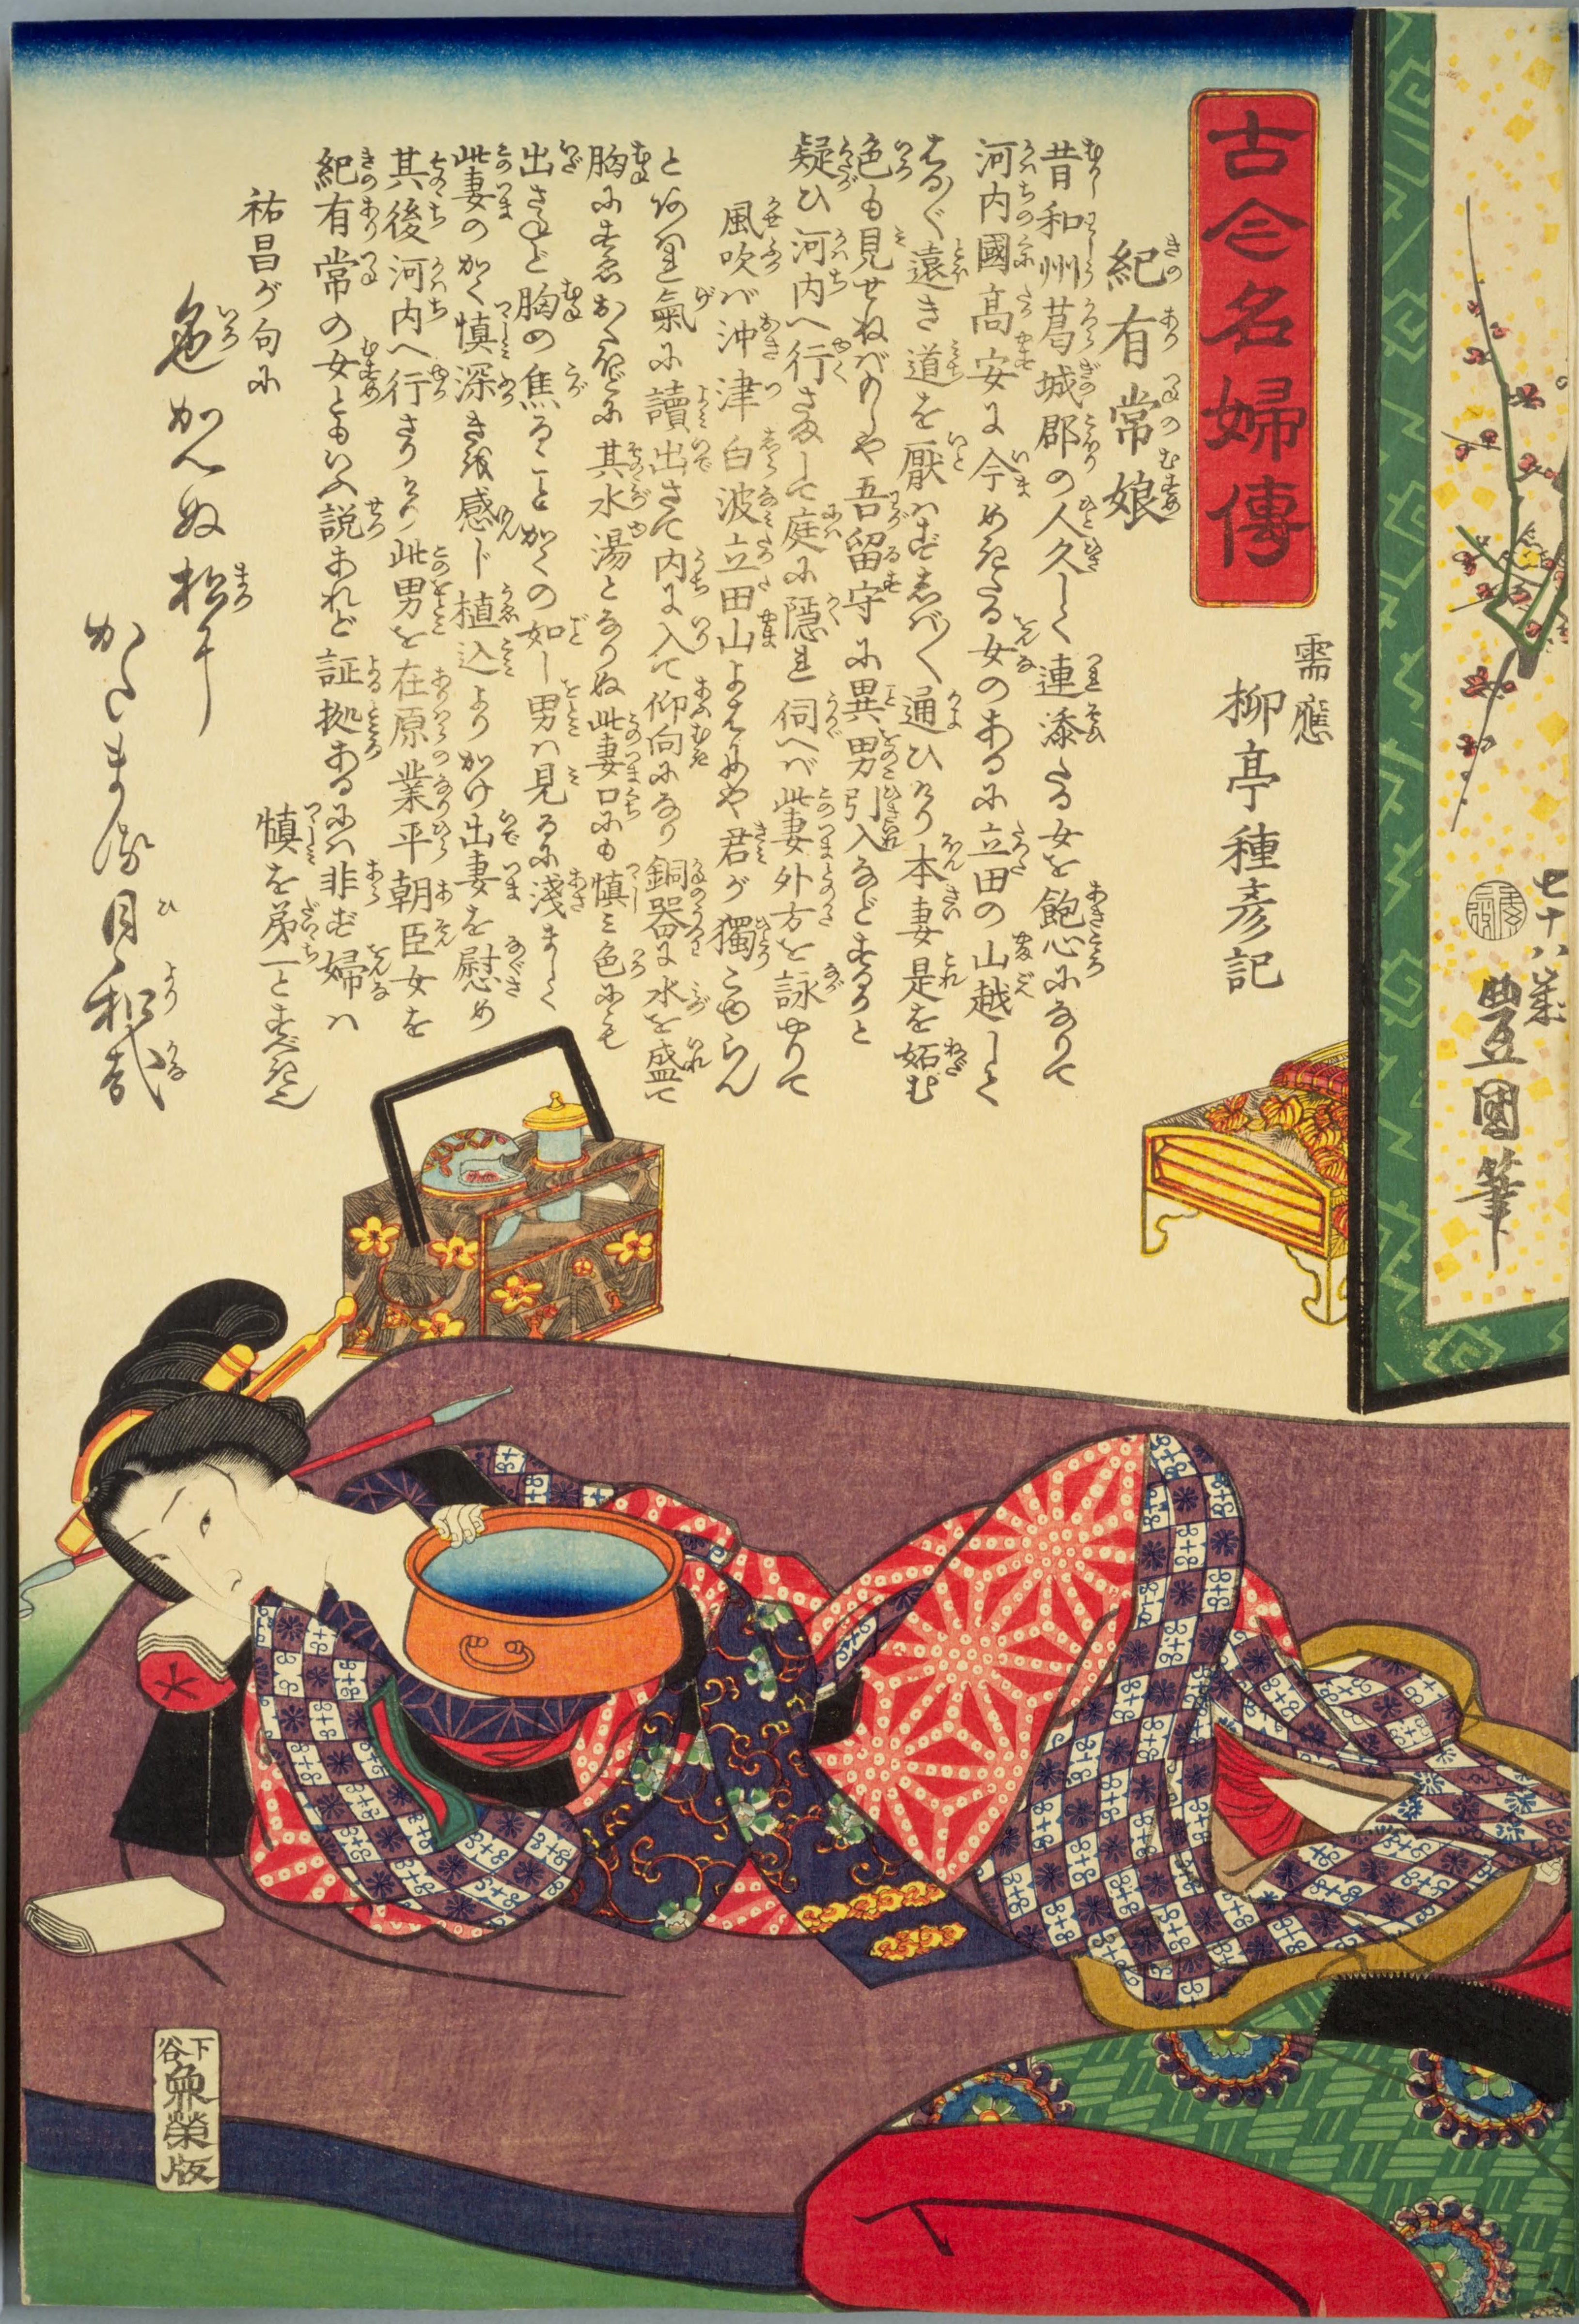 古今名婦傳
需應
柳亭種彦記
紀有常娘
昔和州葛城郡の人久しく連添たる女を飽心になりて
河内國高安に今めきたる女のあるに立田の山越しと
はる〴〵遠き道を厭はずしば〳〵通ひけり本妻是を妬む
色も見せねばもしや吾留守に異男引入などするかと
疑ひ河内へ行さまして庭に隱れ伺へば此妻外方を詠やりて
風吹ば沖津白波立田山よはにや君が獨こゆらん
とあはれ氣に讀出さて内に入て仰向になり銅器に水を盛て
胸にすゑおくほどに其水湯となりぬ此妻口にも慎み色にも
出さねど胸の焦ること かくの如し男は見るに淺ましく
此妻のかく慎深きを感じ植込よりかけ出妻を慰め
其後河内へ行さりけり此男を在原業平朝臣女を
紀有常の女ともいふ説あれど証拠あるには非ず婦は
慎を第一とすべきや
祐昌が句に
色かへぬ松に
かくまる月日哉
七十八歳
豊國筆
下谷
魚榮版